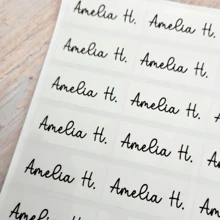 Amelia H. Amelia H.
Amelia H. Amelia H.
Amelia H. Amelia H.
Amelia H. Amelia H.
Amelia H. Amelia H.
Amelia H.